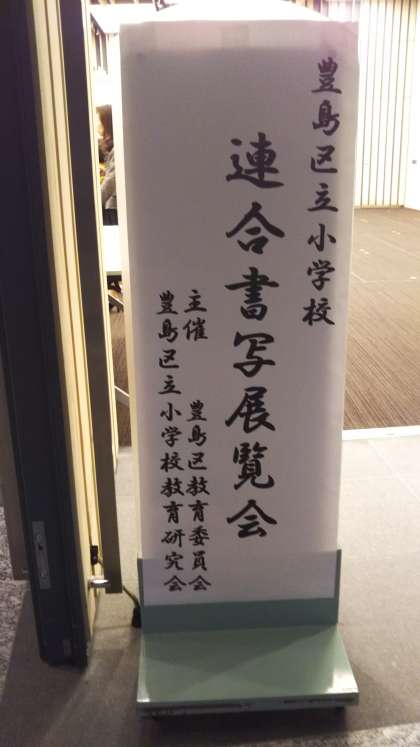 豊島区立小学校
連合書写展覧会
主催 豊島区教育委員会
豊島区立小学校教育研究会